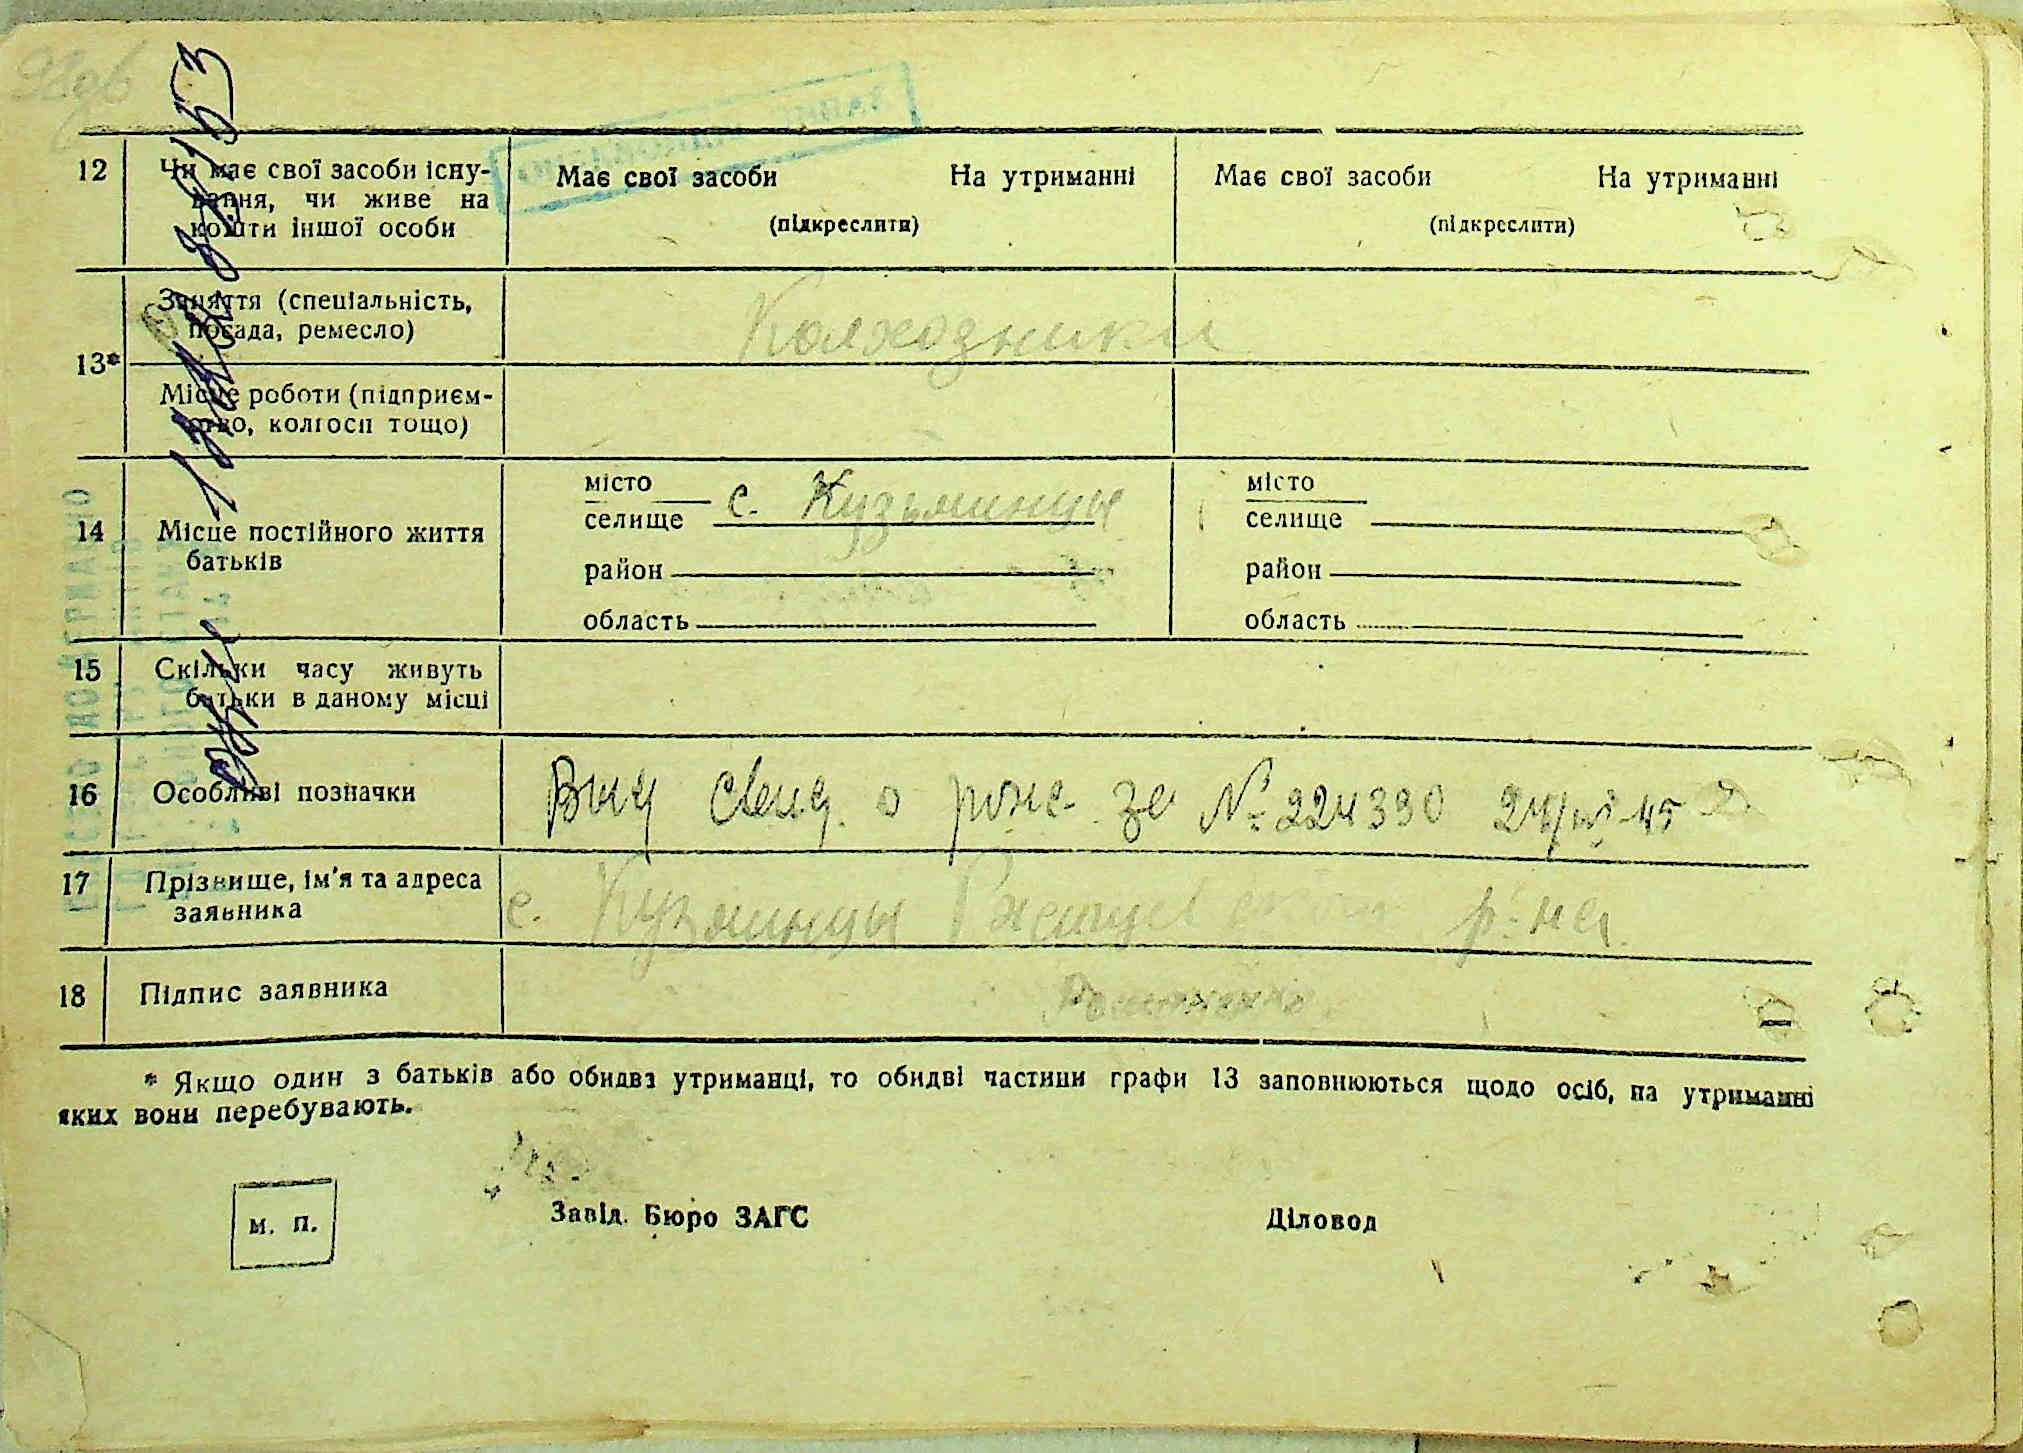 12 Чи має свої засоби існу-
вання, чи живе на
кошти іншої особи
Має свої засоби На утриманні
(підкреслити)
Має свої засоби На утриманні
(підкреслити)
13*
Заняття (спеціальність,
посада, ремесло)
Колхозники
Місце роботи (підприєм-
ство, колгосп тощо)
14 Місце постійного життя
батьків
місто
селище с. Кузьминцы
район
область
місто
селище
район
область
15 Скільки часу живуть
батьки в даному місці
16 Особливі позначки
Выд свид. о рожд. за № 224390
17 Прізвище, ім'я та адреса
заявника
с. Кузминцы р-на
18 Підпис заявника
* Якщо один з батьків або обидва утриманці, то обидві частини графи 13 заповнюються щодо осіб, на утриманні
яких вони перебувають.
м. п.
Завід. Бюро ЗАГС
Діловод